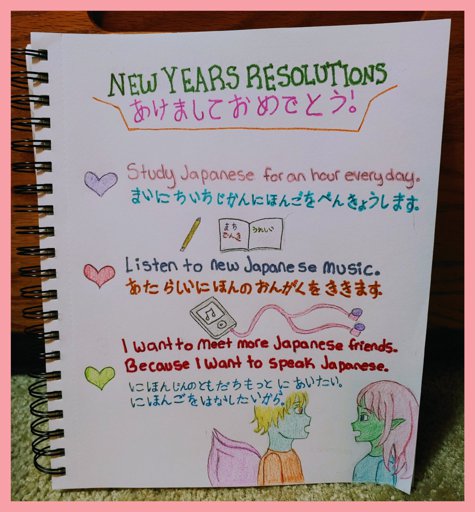 NEW YEARS RESOLUTIONS
あけましておめでとう!
Study Japanese for an hour everyday.
まいにちいちじかんにほんごをべんきょうします。
Listen to new Japanese music.
あたらしいにほんのおんがくをききます
I want to meet more Japanese friends.
Because I want to speak Japanese.
にほんじんのともだちもっとにあいたい。
にほんごをはなしたいから。